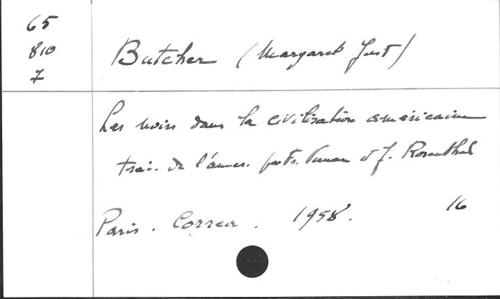 65
810
7
Butcher (Margaret Just)
Les noirs dans la civilisation américaine
trad. de l'amér. par et J. Rosenthal
Paris. Correa. 1958. 16